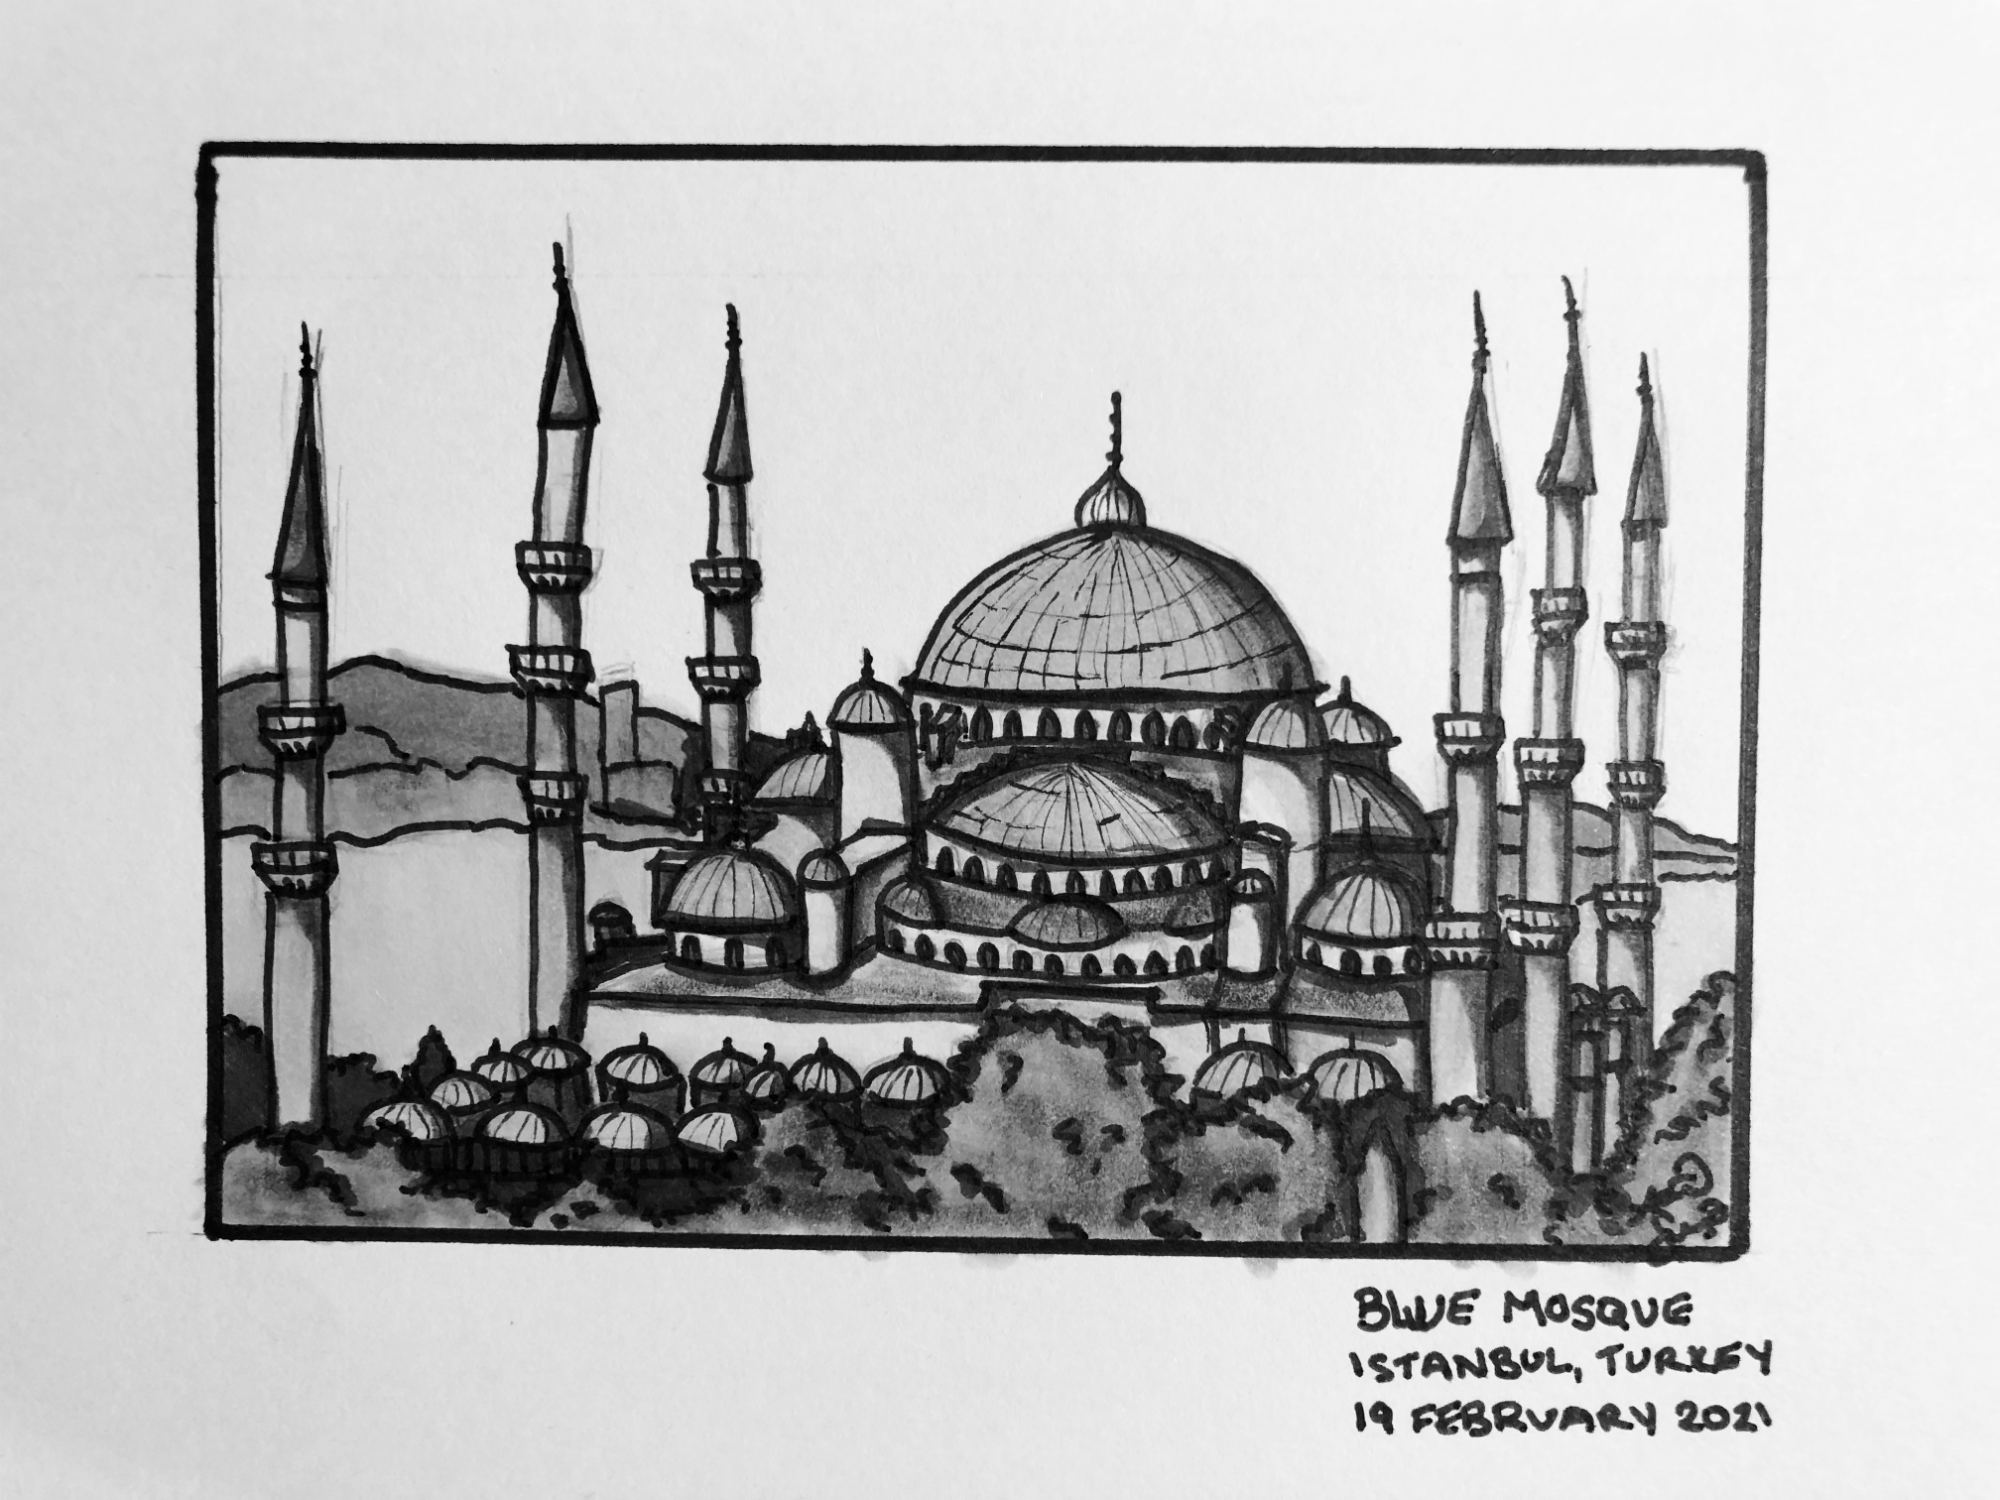 BLUE MOSQUE
ISTANBUL, TURKEY
19 FEBRUARY 2021